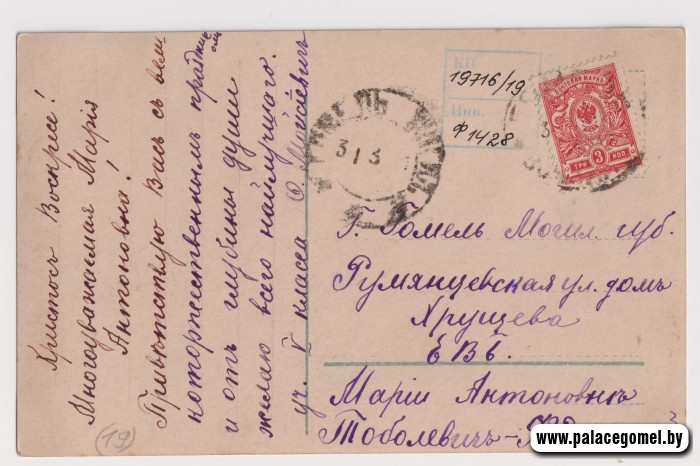 Христосъ Воскресе!
Многоуважаемая Марія
Антоновна!
Привѣтствую Васъ съ вели
которжественнымъ праздник
омъ
и отъ глубины души
желаю всего наилучшаго.
уч. V класса
КП
19716/19
Инв.
Ф1428
ПОЧТОВАЯ МАРКА
3
ТРИ КОП
31 3
Г. Гомель Могил. губ.
Румянцевская ул. домъ
Хрущева
ЕВБ.
Маріи Антоновнѣ
Тоболевичъ-
(19)
www.palacegomel.by